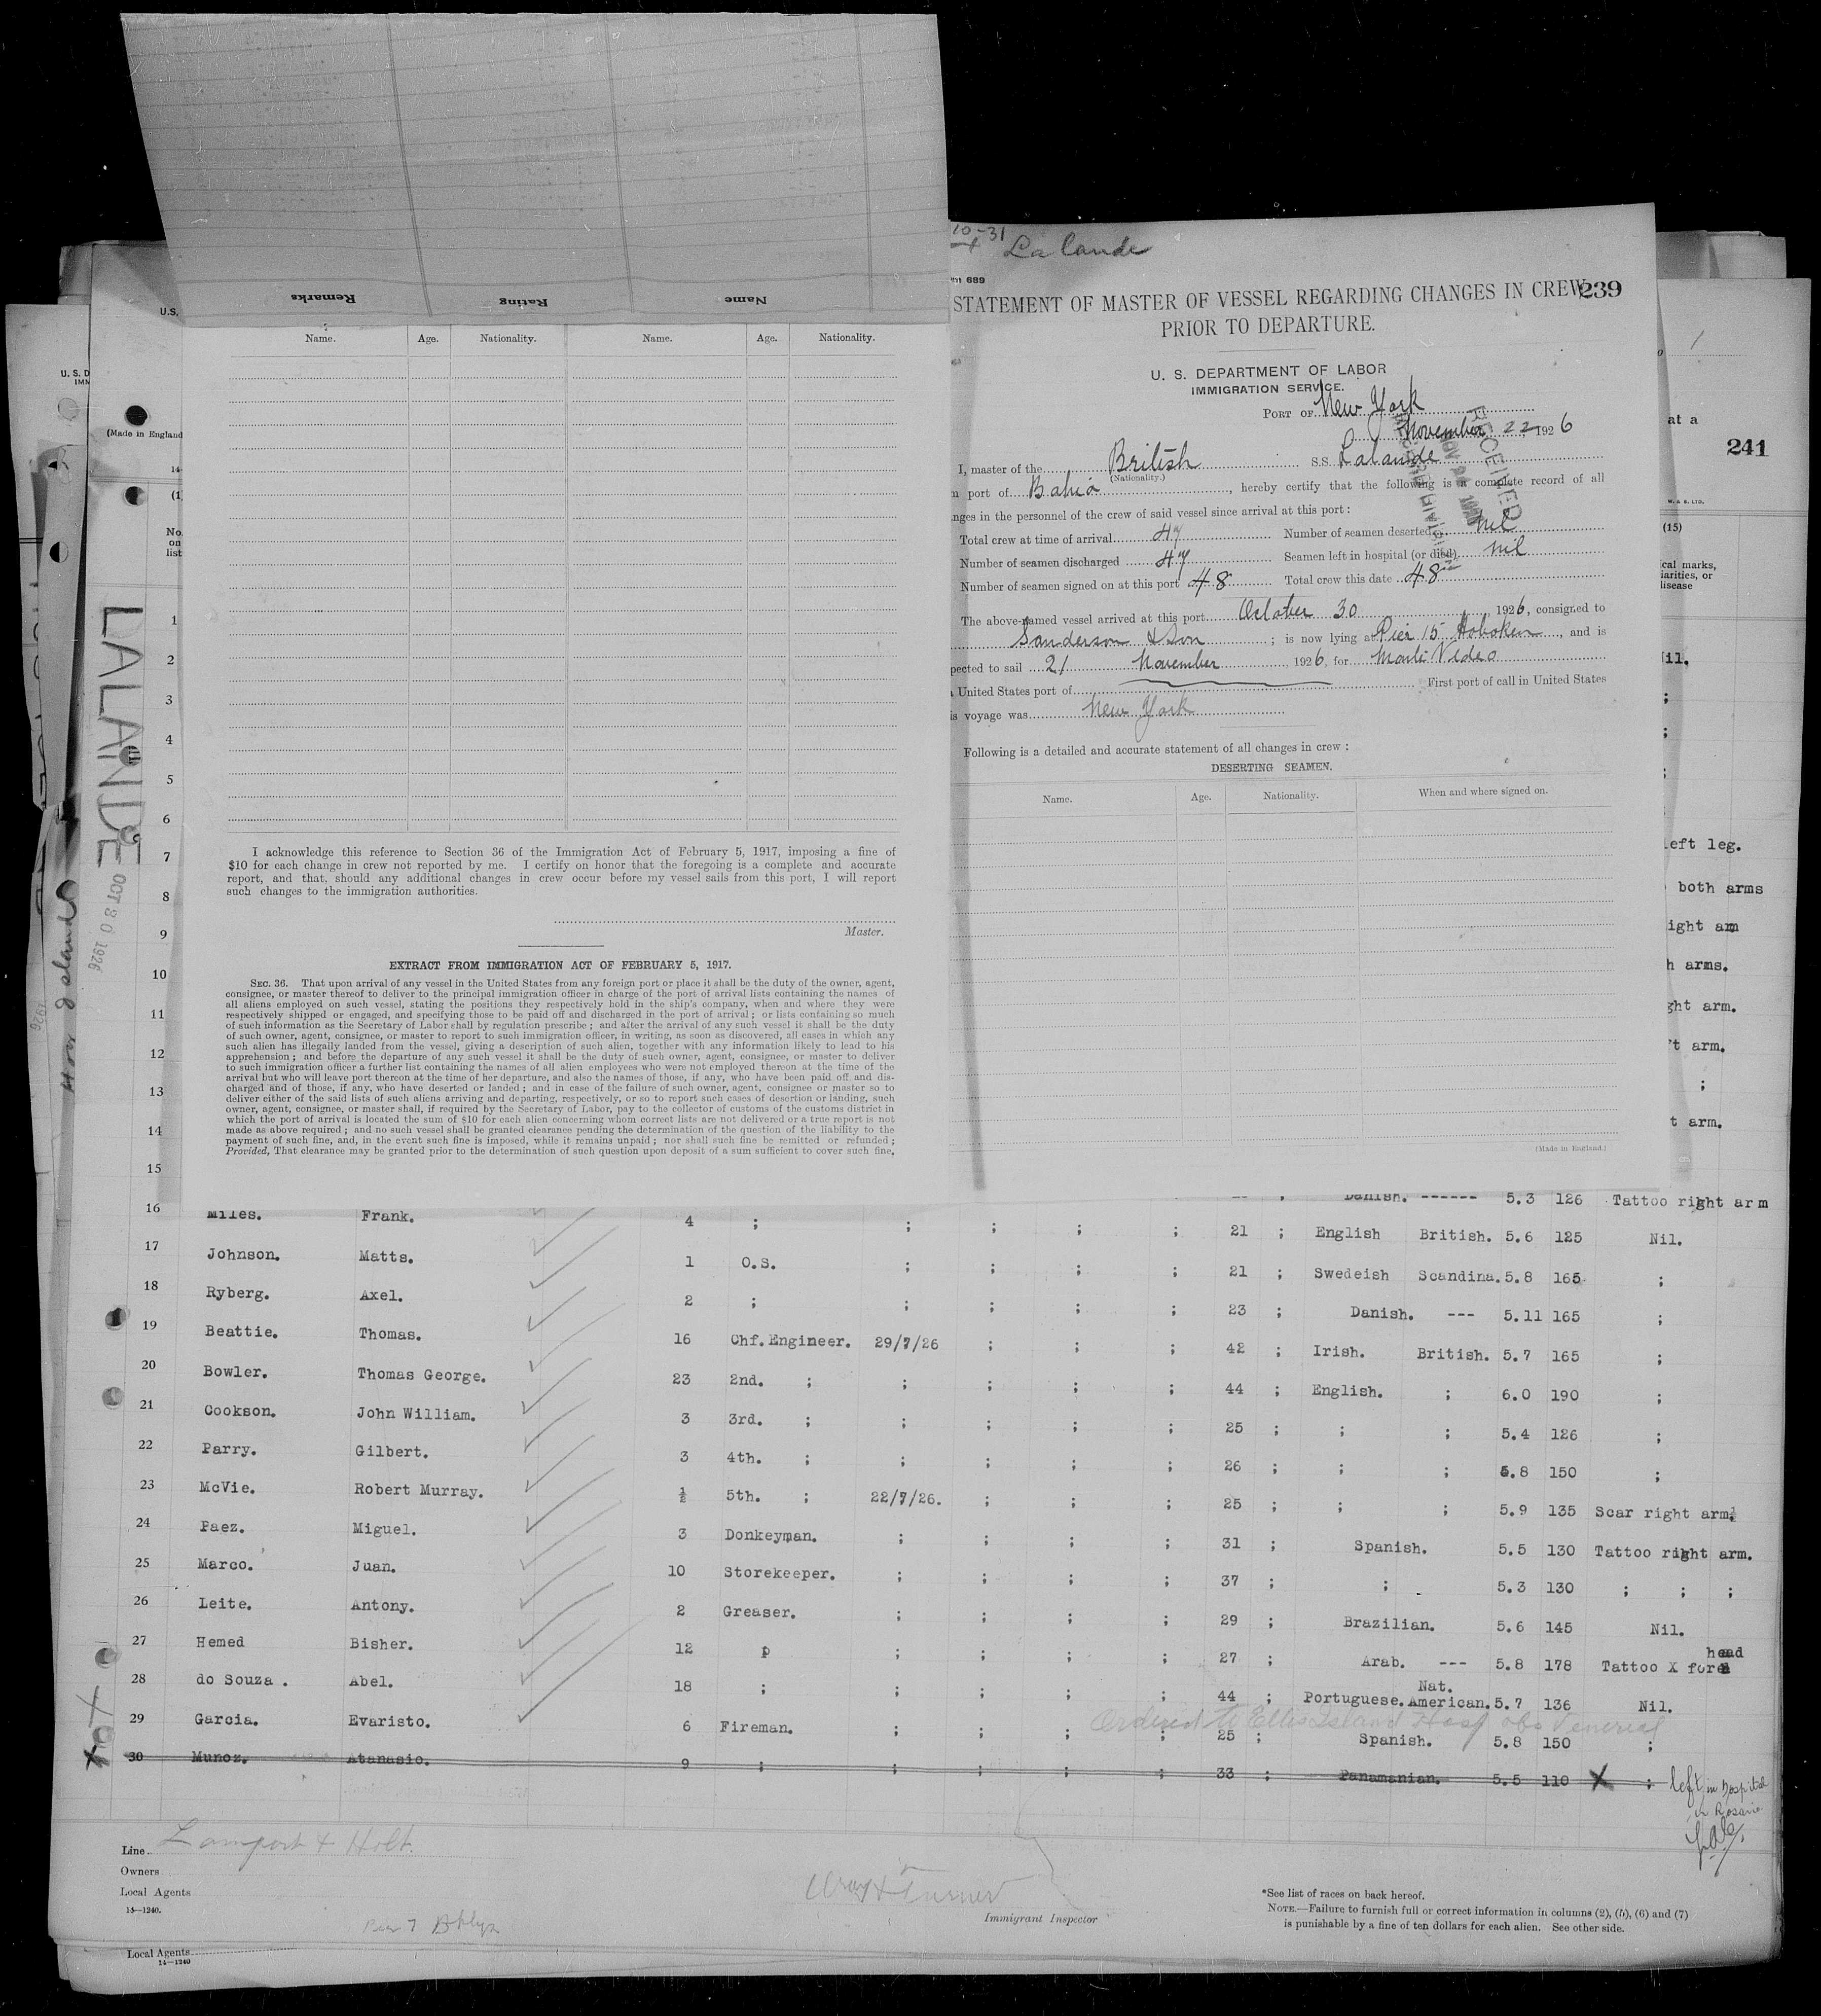 Remarks Rating Name
U.S.
Name. Age. Nationality. Name. Age. Nationality.
I acknowledge this reference to Section 36 of the Immigration Act of February 5, 1917, imposing a fine of
$10 for each change in crew not reported by me. I certify on honor that the foregoing is a complete and accurate
report, and that, should any additional changes in crew occur before my vessel sails from this port, I will report
such changes to the immigration authorities.
Master.
EXTRACT FROM IMMIGRATION ACT OF FEBRUARY 5, 1917.
SEC. 36. That upon arrival of any vessel in the United States from any foreign port or place it shall be the duty of the owner, agent,
consignee, or master thereof to deliver to the principal immigration officer in charge of the port of arrival lists containing the names of
all aliens employed on such vessel, stating the positions they respectively hold in the ship's company, when and where they were
respectively shipped or engaged, and specifying those to be paid off and discharged in the port of arrival; or lists containing so much
of such information as the Secretary of Labor shall by regulation prescribe; and after the arrival of any such vessel it shall be the duty
of such owner, agent, consignee, or master to report to such immigration officer, in writing, as soon as discovered, all cases in which any
such alien has illegally landed from the vessel, giving a description of such alien, together with any information likely to lead to his
apprehension; and before the departure of any such vessel it shall be the duty of such owner, agent, consignee, or master to deliver
to such immigration officer a further list containing the names of all alien employees who were not employed thereon at the time of the
arrival but who will leave port thereon at the time of her departure, and also the names of those, if any, who have been paid off and dis-
charged and of those, if any, who have deserted or landed; and in case of the failure of such owner, agent, consignee or master so to
deliver either of the said lists of such aliens arriving and departing, respectively, or so to report such cases of desertion or landing, such
owner, agent, consignee, or master shall, if required by the Secretary of Labor, pay to the collector of customs of the customs district in
which the port of arrival is located the sum of $10 for each alien concerning whom correct lists are not delivered or a true report is not
made as above required; and no such vessel shall be granted clearance pending the determination of the question of the liability to the
payment of such fine, and, in the event such fine is imposed, while it remains unpaid; nor shall such fine be remitted or refunded;
Provided, That clearance may be granted prior to the determination of such question upon deposit of a sum sufficient to cover such fine,
10-31
Lalande
689
STATEMENT OF MASTER OF VESSEL REGARDING CHANGES IN CREW 239
PRIOR TO DEPARTURE.
U. S. DEPARTMENT OF LABOR
IMMIGRATION SERVICE.
PORT OF New York
November 22 1926
RECEIVED
I, master of the British S.S. Lalande
(Nationality.)
port of Bahia, hereby certify that the following is a complete record of all
nges in the personnel of the crew of said vessel since arrival at this port:
Total crew at time of arrival 47 Number of seamen deserted nil
Number of seamen discharged 47 Seamen left in hospital (or died) nil
Number of seamen signed on at this port 48 Total crew this date 48
The above-named vessel arrived at this port October 30 1926, consigned to
Sanderson & Son; is now lying at Pier 15 Hoboken, and is
pected to sail 21 November, 1926, for Monte Video
United States port of First port of call in United States
is voyage was New York
Following is a detailed and accurate statement of all changes in crew:
DESERTING SEAMEN.
Name. Age. Nationality. When and where signed on.
(Made in England.)
U. S. D
IMM
(Made in England
14
(1)
No.
on
list
LALANDE
OCT 30 1926
1926
1
at a
241
W. & S. LTD.
(15)
cal marks,
iarities, or
disease
1
2
3
4
5
6
7
8
9
10
11
12
13
14
15
Nil.
;
;
;
left leg.
both arms
ight arm
h arms.
ght arm.
't arm.
;
t arm.
Danish. ------ 5.3 126 Tattoo right arm
16 Miles. Frank. 4 ; ; ; ; ; 21 ; English British. 5.6 125 Nil.
17 Johnson. Matts. 1 O.S. ; ; ; ; 21 ; Swedeish Scandina. 5.8 165 ;
18 Ryberg. Axel. 2 ; ; ; ; ; 23 ; Danish. --- 5.11 165 ;
19 Beattie. Thomas. 16 Chf. Engineer. 29/7/26 ; ; ; 42 ; Irish. British. 5.7 165 ;
20 Bowler. Thomas George. 23 2nd. ; ; ; ; ; 44 ; English. ; 6.0 190 ;
21 Cookson. John William. 3 3rd. ; ; ; ; ; 25 ; ; ; 5.4 126 ;
22 Parry. Gilbert. 3 4th. ; ; ; ; ; 26 ; ; ; 5.8 150 ;
23 McVie. Robert Murray. ½ 5th. ; 22/7/26. ; ; ; 25 ; ; ; 5.9 135 Scar right arm.
24 Paez. Miguel. 3 Donkeyman. ; ; ; ; 31 ; Spanish. 5.5 130 Tattoo right arm.
25 Marco. Juan. 10 Storekeeper. ; ; ; ; 37 ; ; 5.3 130 ; ; ;
26 Leite. Antony. 2 Greaser. ; ; ; ; 29 ; Brazilian. 5.6 145 Nil.
27 Hemed Bisher. 12 p ; ; ; ; 27 ; Arab. --- 5.8 178 Tattoo X forehead
28 do Souza . Abel. 18 ; ; ; ; ; 44 ; Portuguese. Nat. American. 5.7 136 Nil.
Ordered to Ellis Island Hosp obs Venereal
29 Garcia. Evaristo. 6 Fireman. ; ; ; ; 25 ; Spanish. 5.8 150 ;
30 Munoz. Atanasio. 9 ; ; ; ; ; 33 ; Panamanian. 5.5 110 X ; left in hospital
in Rosario
Line Lamport & Holt.
Owners
Local Agents
14—1240.
Pier 7 Bklyn
Immigrant Inspector
*See list of races on back hereof.
NOTE.—Failure to furnish full or correct information in columns (2), (5), (6) and (7)
is punishable by a fine of ten dollars for each alien. See other side.
Local Agents
14—1240